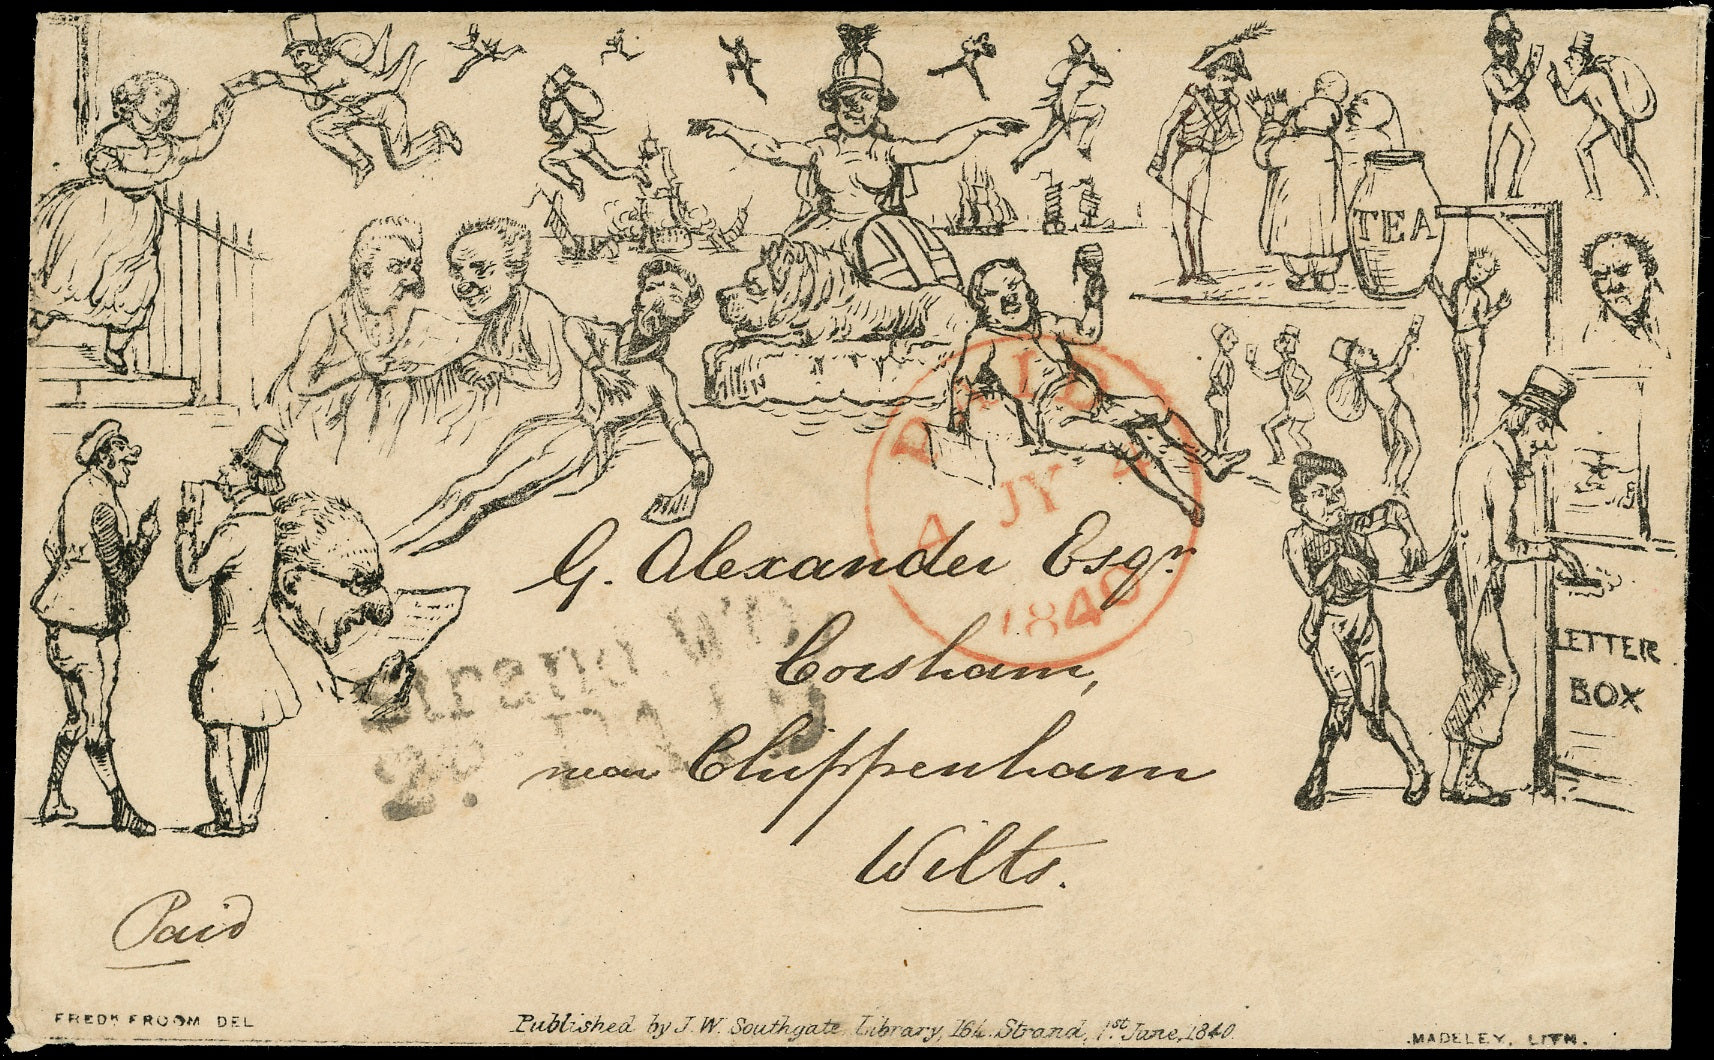 TEA
PAID
4 JY 4
1840
LETTER
BOX
G. Alexander Esqr.
Corsham,
near Chippenham
Wilts.
Strand W.O.
2d. PAID
Paid
FREDK FROOM DEL
Published by J. W. Southgate, Library, 164. Strand, 1st June, 1840.
MADELEY, LITH.